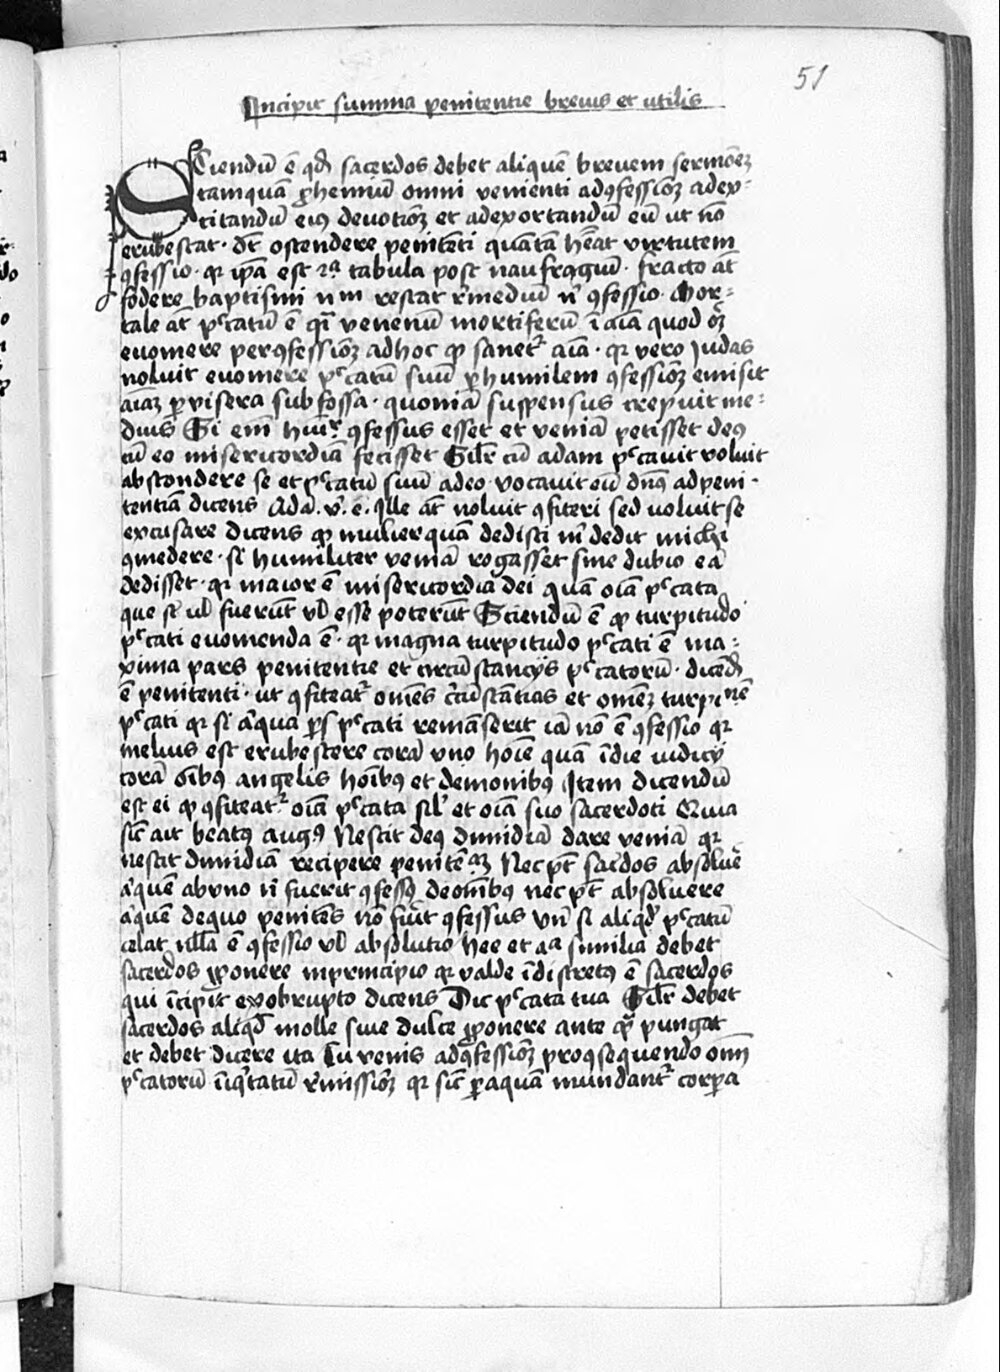 51
Incipit summa penitentie brevis et utilis
Sciendū ē qđ sacerdos debet aliquē brevem sermōeꝫ
tamquā ꝓhemiū omni venienti adꝯfessiōꝫ adex-
citandū eiꝰ devotiōꝫ et adexortandū eū ut nō
erubescat · dꝫ ostendere penitēti quātā hēat virtutem
ꝯfessio · qr ip̄a est 2ᵃ tabula post naufragiū · fracto at̄
federe baptismi nō restat r̓mediū n̓ ꝯfessio · Mor-
tale at̄ pͨcatū ē q̄i venenū mortiferū ī aīa quod oꝫ
evomere perꝯfessiōꝫ adhoc ꝙ sanetᷣ aīa · qr vero Judas
noluit evomere pͨcatū suū ꝑhumilem ꝯfessiōꝫ emisit
aīaꝫ ꝑvisera subfossa · quoniā suspensus crepuit me-
dius Si em̄ humilr̓ ꝯfessus esset et veniā petisset deꝰ
cū eo misericordiā fecisset Silr̄ cū adam pͨcavit voluit
abscondere se et pͨcatū suū adeo vocavit eū dn̄s adpeni-
tentiā dicens Adā · v̓ · ē · Ille at̄ noluit ꝯfiteri sed voluit se
excusare dicens ꝙ mulier quā dedisti m̄ dedit michi
ꝯmedere · si humiliter veniā rogasset sine dubio eā
dedisset · qr maior ē misericordia dei quā oīa pͨcata
que st̄ ul̄ fuerūt vl̄ esse poterūt Sciendū ē ꝙ turpitudo
pͨcati evomenda ē · qr magna turpitudo pͨcati ē ma-
xima pars penitentie et circūstancijs pͨcatorū · dicēdū
ē penitenti · ut ꝯfiteatᷣ omēs cͬcūstātias et omēꝫ turpinēꝫ
pͨcati qr si aͥqua ꝑs pͨcati remāserit iā nō ē ꝯfessio qr
melius est erubescere corā uno hoīe quā īdie iudicij
corā oībꝰ angelis hoībꝰ et demonibꝰ Item dicendū
est ei ꝙ ꝯfiteatᷣ oīa pͨcata sil̓ et oīa suo sacerdoti Quia
sic̄ ait beatꝰ augꝰ Nescit deꝰ dimidiā dare veniā qr
nescit dimidiā recipere penitēāꝫ Nec pt̄ sac̄dos absolvē
aͥquē abuno n̄ fuerit ꝯfessꝰ deomībꝰ nec pt̄ absolvere
aͥquē dequo penitēs nō fūit ꝯfessus Vn̄ si aliqđ pͨcatū
celat nll̄a ē ꝯfessio vl̄ absolutio Hec et aᵃ similia debet
sacerdos ꝓponere inprincipio qr valde īdiscretꝰ ē sacerdos
qui īcipit exobrupto dicens Dic pͨcata tua Silr̄ debet
sacerdos aliqđ molle sive dulce ꝓponere ante qꝫ pungat
et debet dicere ita Tu venis adꝯfessiōꝫ proꝯsequendo omī
pͨcatorū īiqͥtatū r̓missiōꝫ qr sic̄ ꝑaquā mundantᷣ corpora